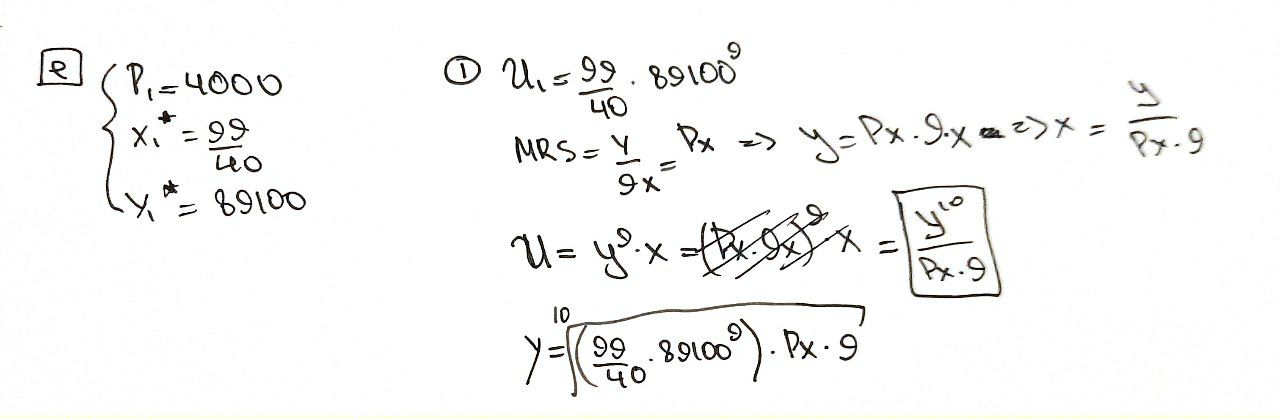 e
P₁ = 4000
x₁* = 99/40
y₁* = 89100
① U₁ = 99/40 · 89100⁹
MRS = y/9x = Px => y = Px · 9 · x => x = y/(Px · 9)
U = y⁹ · x = (Px · 9x)⁹ · x = y¹⁰/(Px · 9)
y = ¹⁰√((99/40 · 89100⁹) · Px · 9)